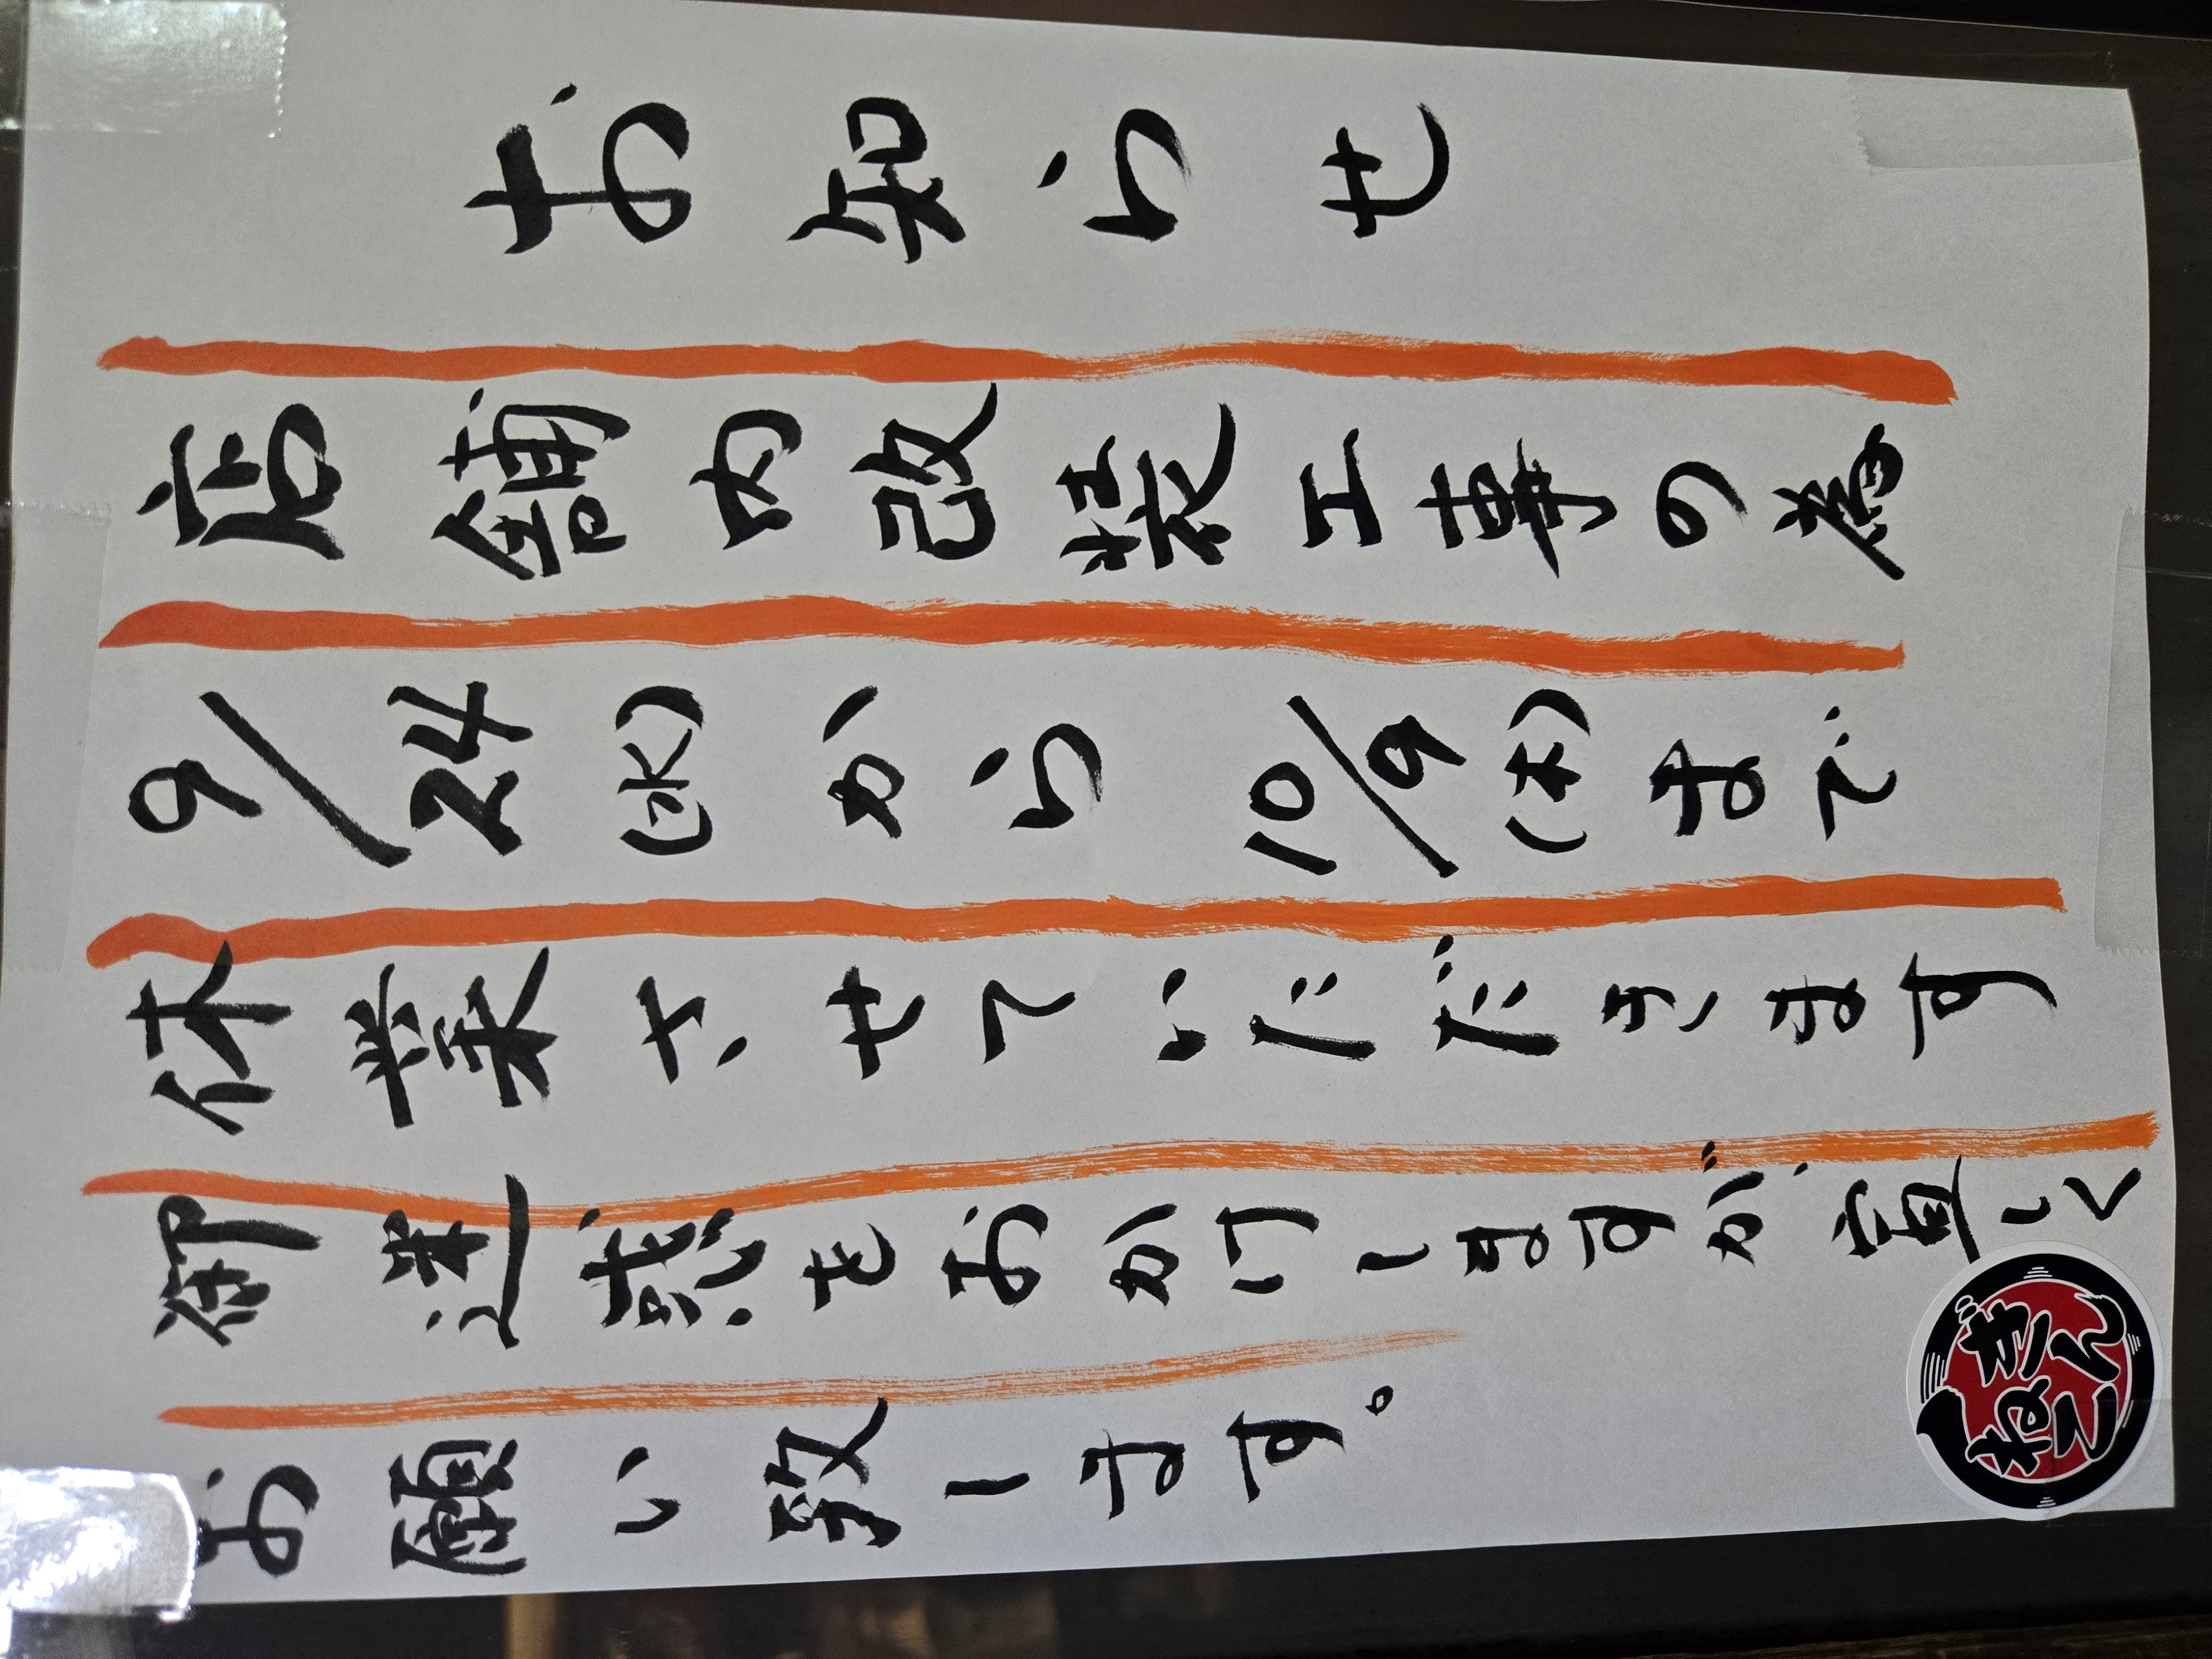 お知らせ
店舗内改装工事の為
9/24(水)から10/9(木)まで
休業させていただきます
御迷惑をおかけしますが、宜しく
お願い致します。
ぎん
ねこ